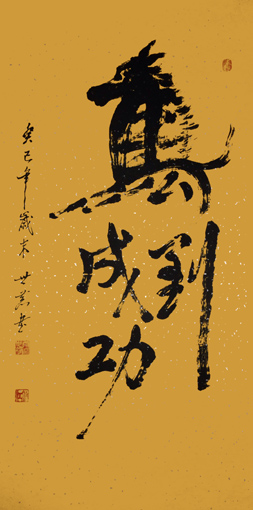 馬到成功
癸巳年歲末 世